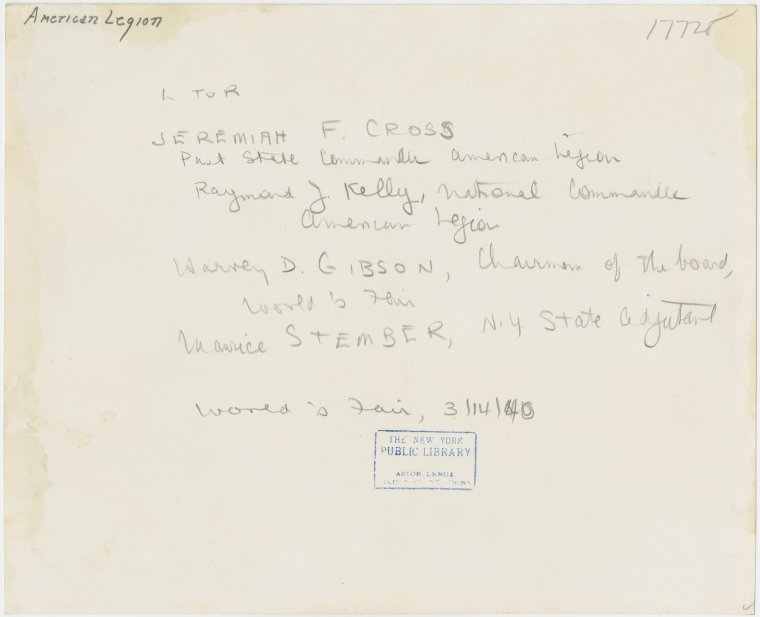 American Legion
17728
L To R
JEREMIAH F. CROSS
Past State Commander American Legion
Raymond J. Kelly, National Commander
American Legion
Harvey D. GIBSON, Chairman of the board,
World's Fair
Maurice STEMBER, N.Y State Adjutant
World's Fair, 3/14/40
THE NEW YORK
PUBLIC LIBRARY
ASTOR LENOX